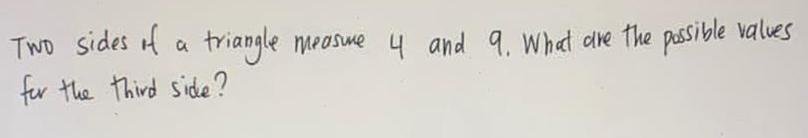 Two sides of a triangle measure 4 and 9. What are the possible values
for the third side?